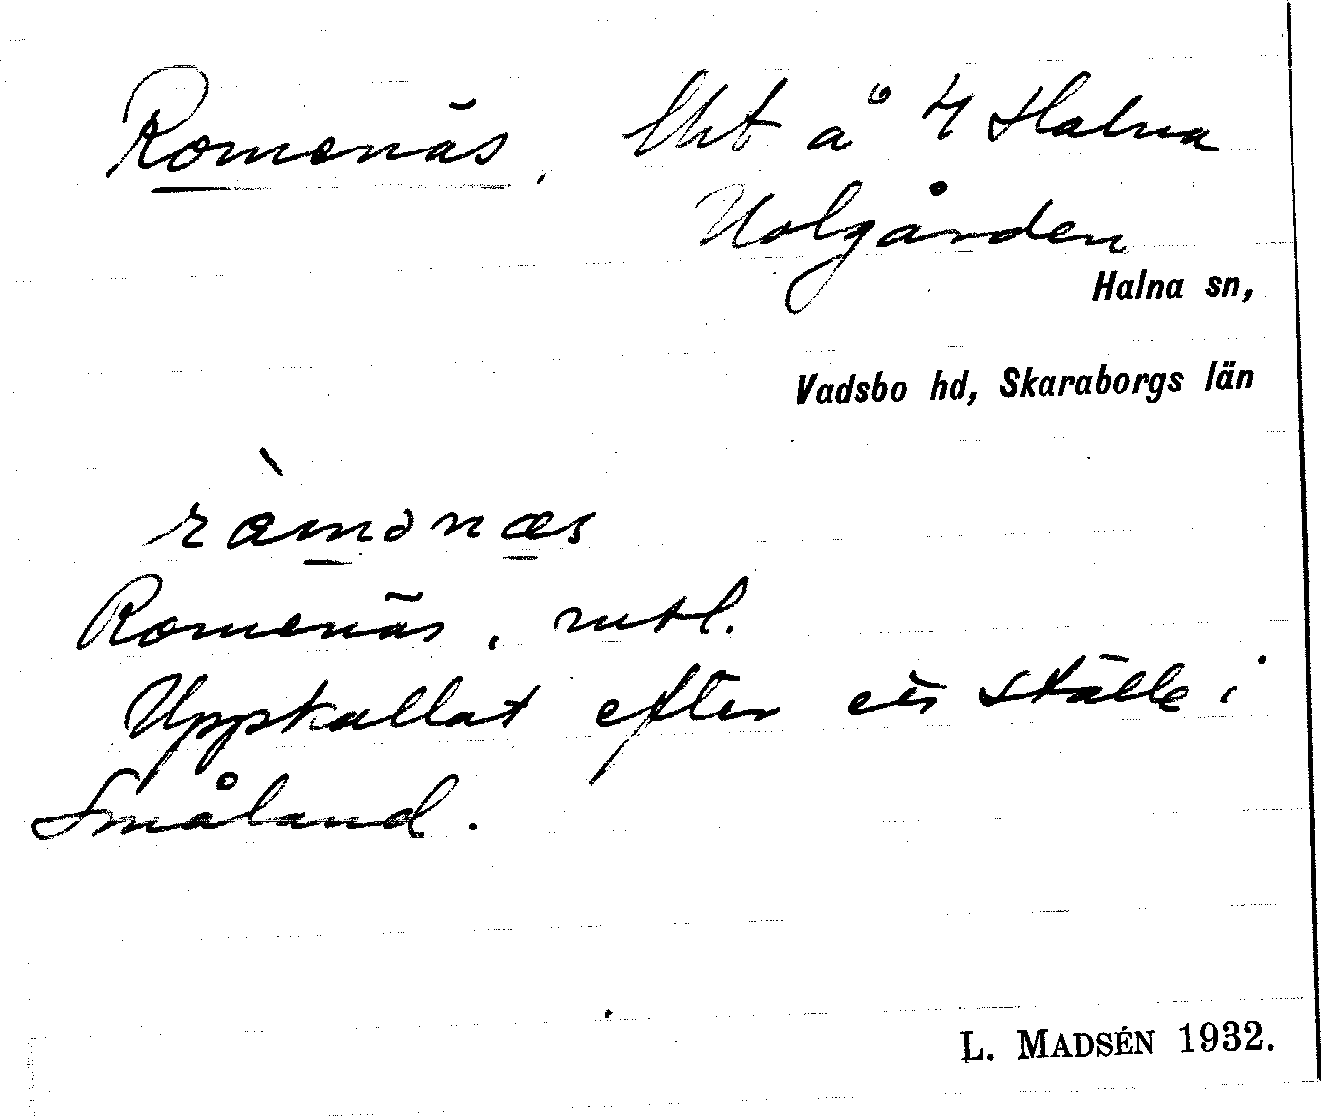 Romenäs, Uht å 4 Halna
Holgården
Halna sn,
Vadsbo hd, Skaraborgs län
Romenäs, mtl.
Uppkallat efter ett ställe i
Småland.
L. MADSÉN 1932.